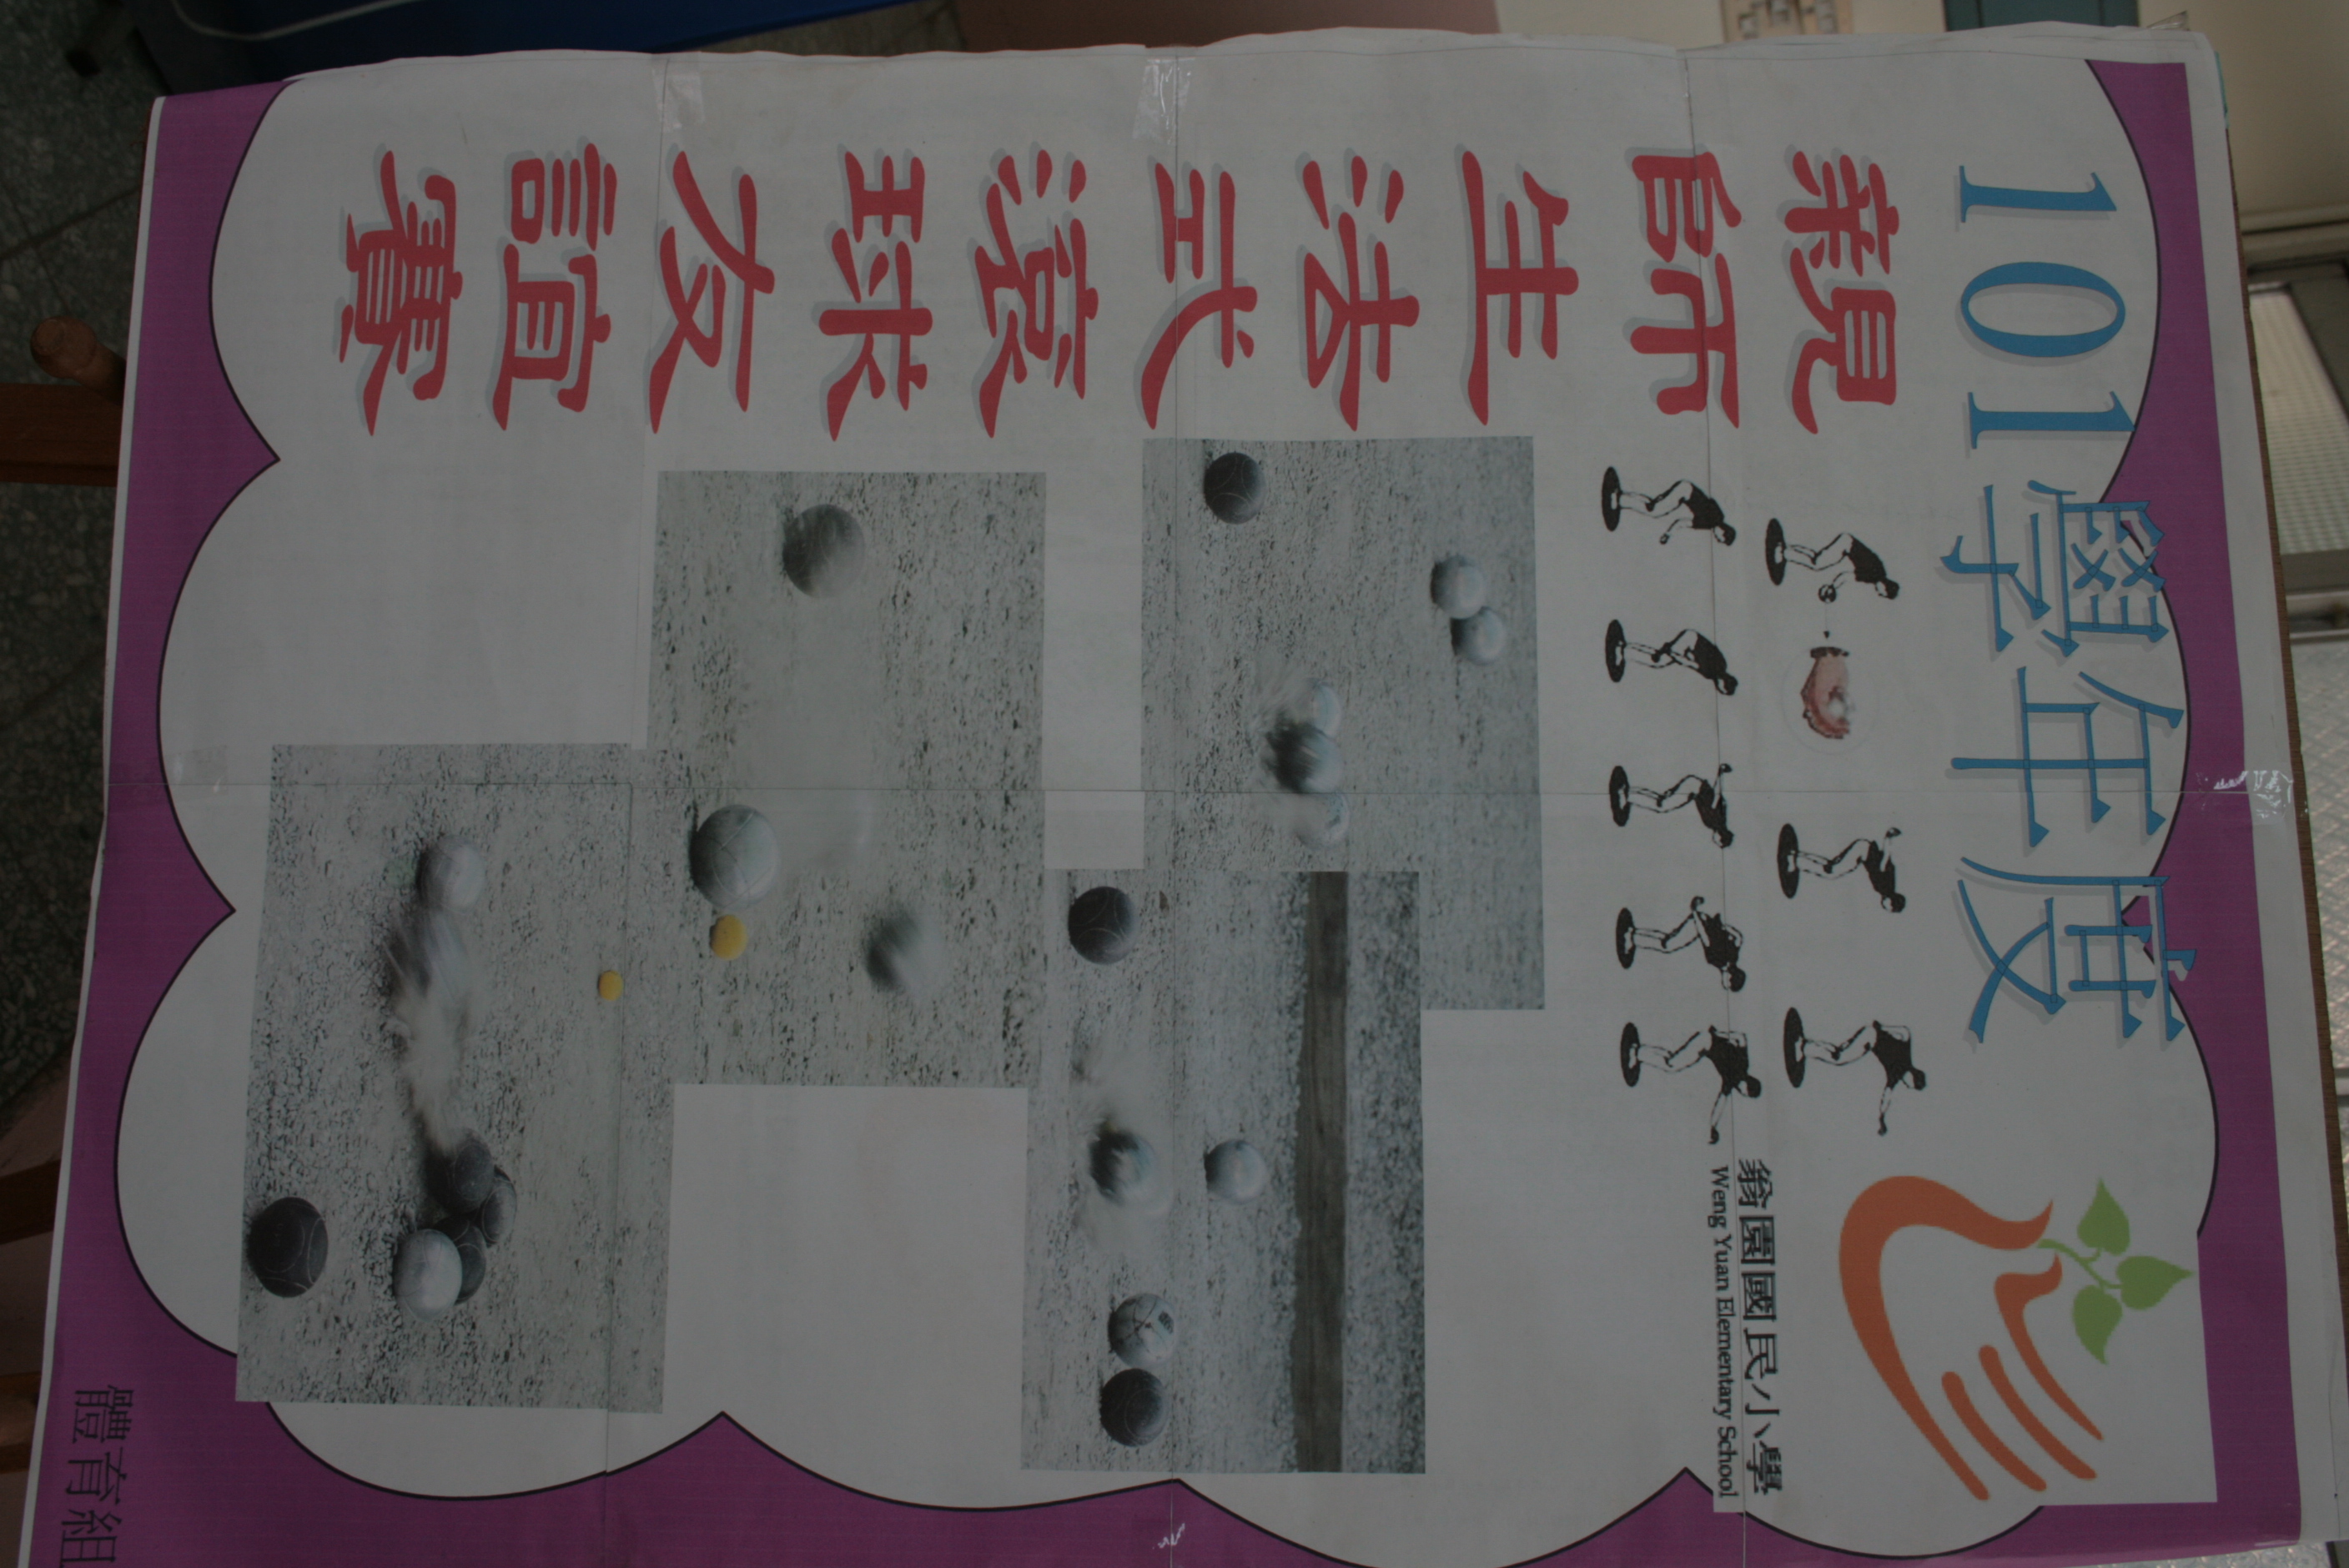 101學年度
親師生法式滾球友誼賽
翁園國民小學
Weng Yuan Elementary School
體育組